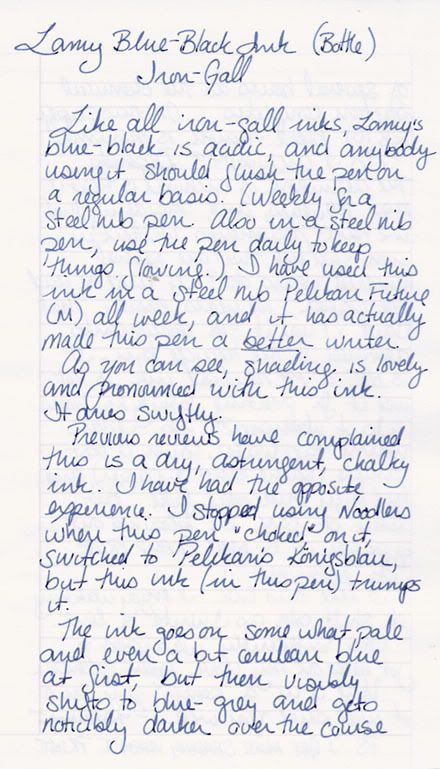 Lamy Blue-Black Ink (Bottle)
Iron-Gall
Like all iron-gall inks, Lamy's
blue-black is acidic, and anybody
using it should flush the pen on
a regular basis. (Weekly for a
steel nib pen. Also in a steel nib
pen, use the pen daily to keep
things flowing.) I have used this
ink in a steel nib Pelikan Future
(M) all week, and it has actually
made this pen a better writer.
As you can see, shading is lovely
and pronounced with this ink.
It dries swiftly.
Previous reviews have complained
this is a dry, astringent, chalky
ink. I have had the opposite
experience. I stopped using Noodlers
when this pen "choked" on it,
switched to Pelikan's Königsblau,
but this ink (in this pen) trumps
it.
The ink goes on some what pale
and even a bit cerulean blue
at first, but then visibly
shifts to blue-grey and gets
noticibly darker over the course